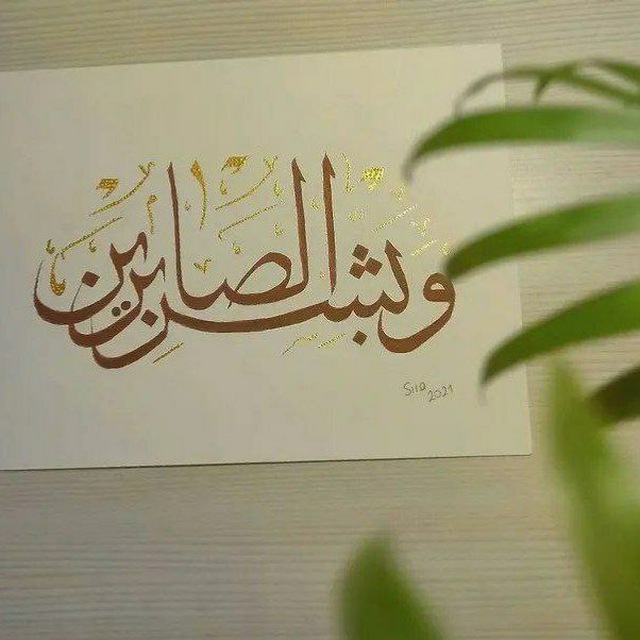 وبشر الصابرين
Sıla
2021